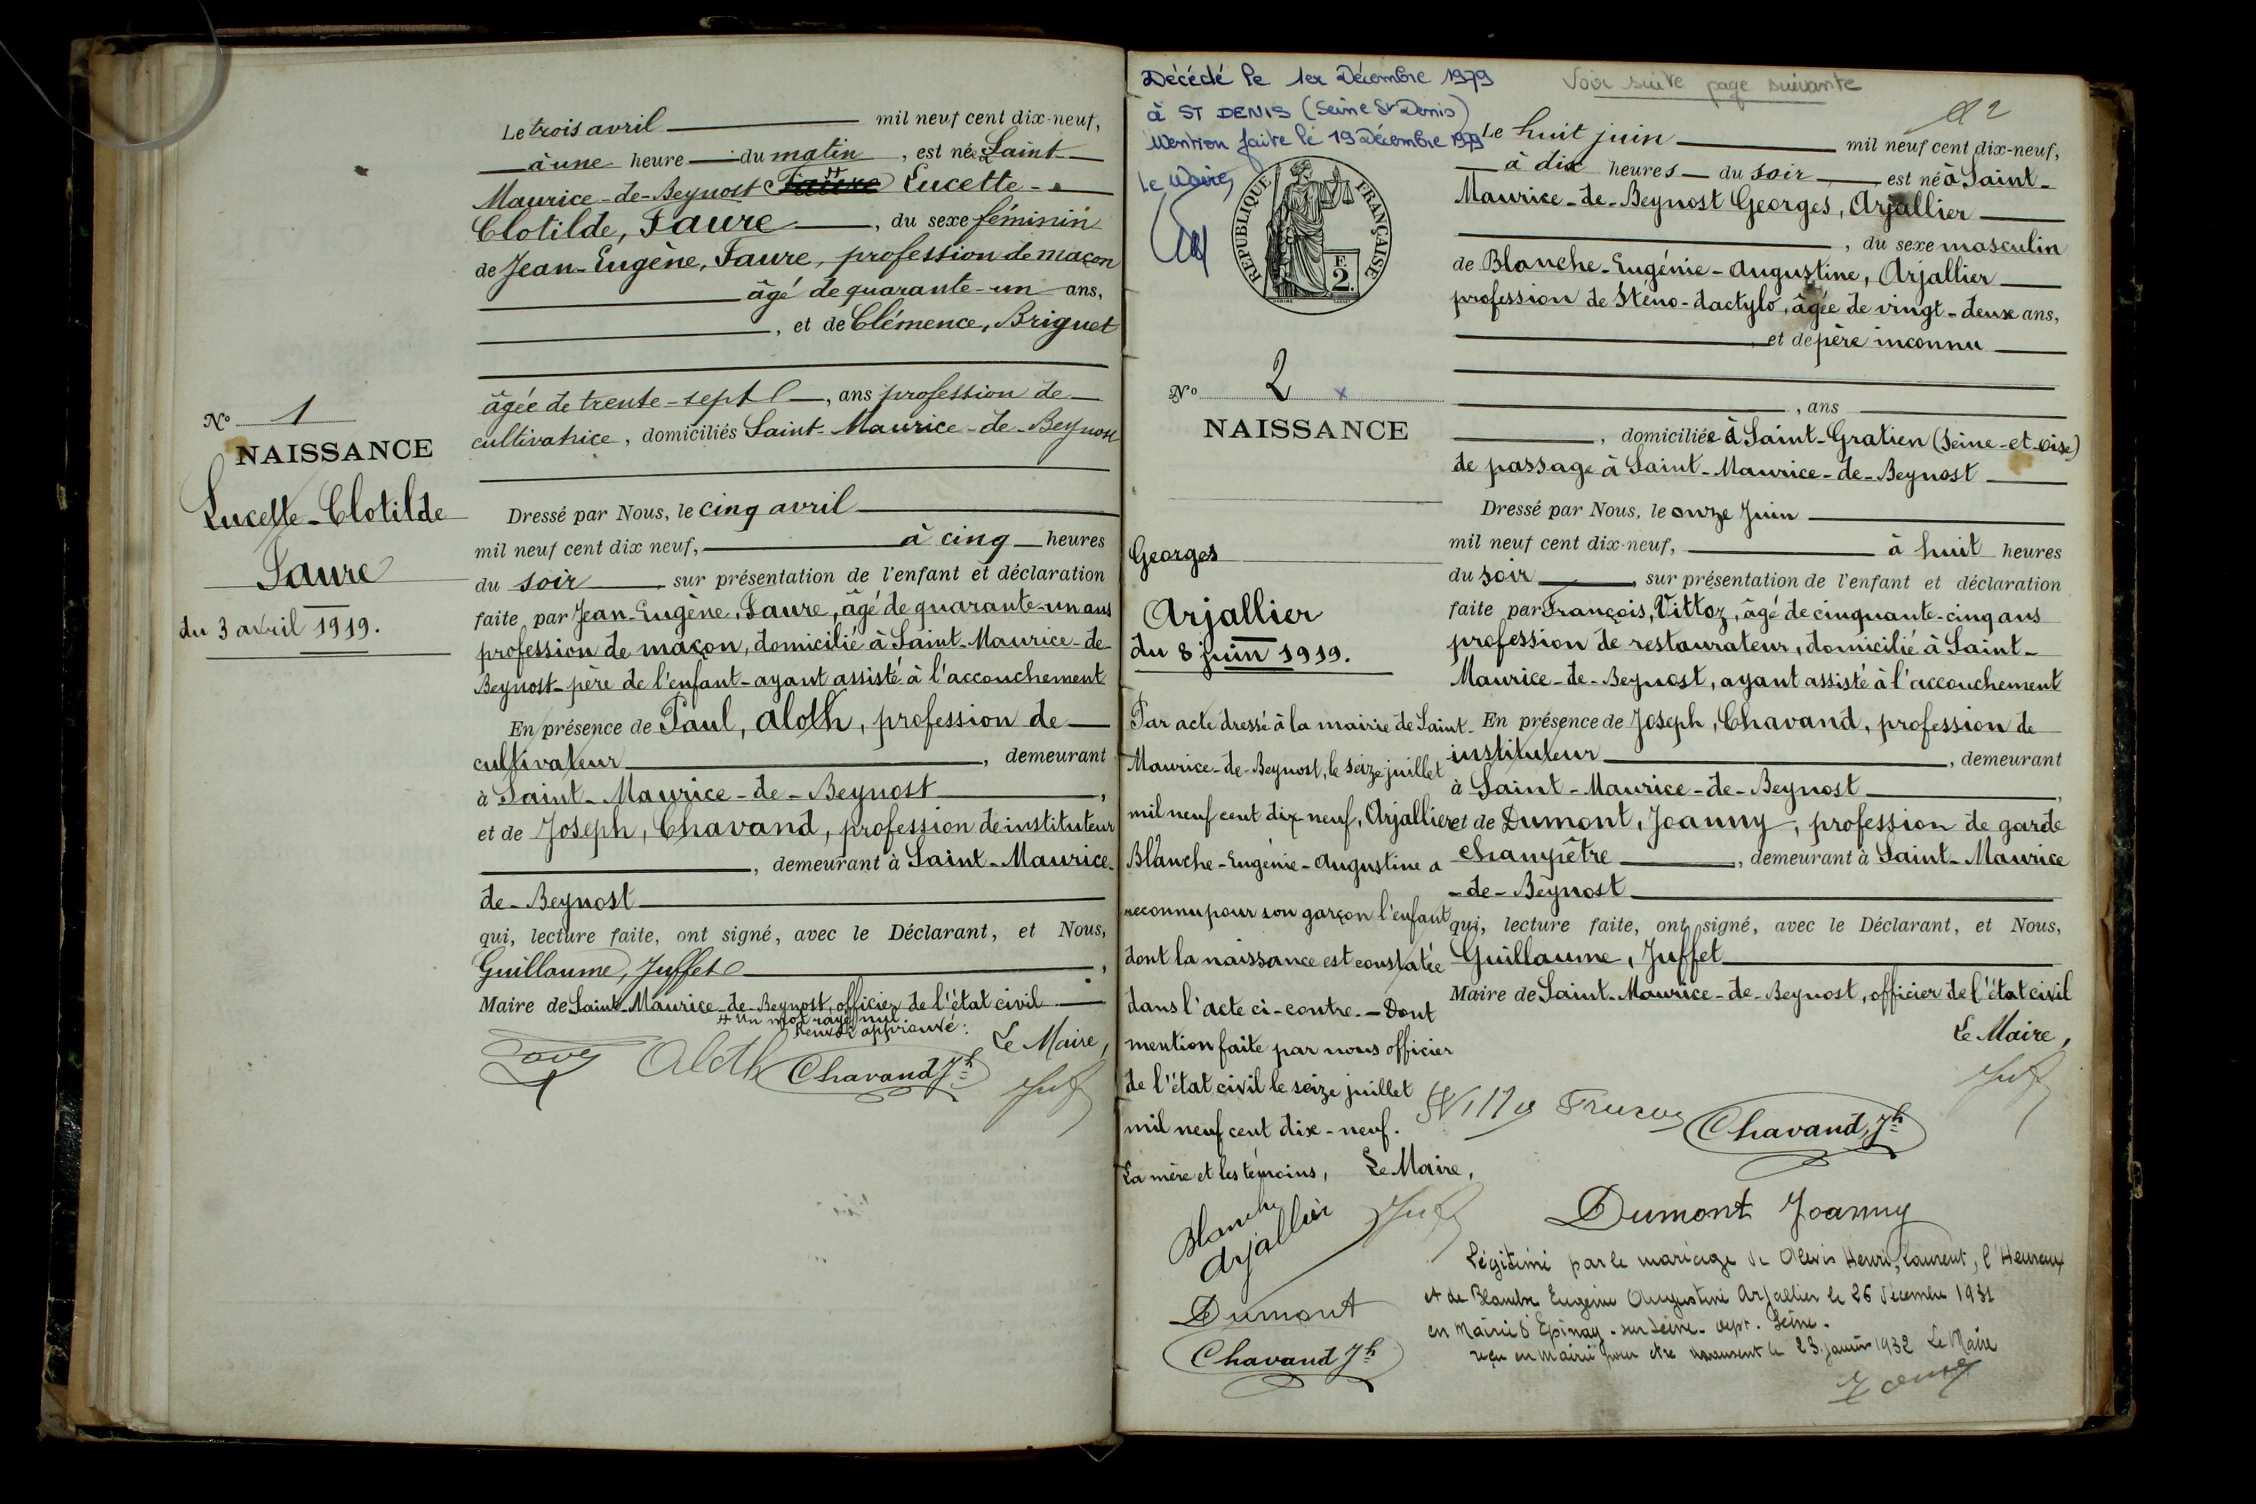 Le trois avril mil neuf cent dix-neuf,
à une heure du matin, est née Saint
Maurice-de-Beynost Lucette-
Clotilde, Faure, du sexe féminin
de Jean-Eugène, Faure, profession de maçon
âgé de quarante-un ans,
, et de Clémence, Briguet
âgée de trente-sept, ans profession de
cultivatrice, domiciliés Saint-Maurice-de-Beynost
N° 1
NAISSANCE
Lucette-Clotilde
Faure
du 3 avril 1919.
Dressé par Nous, le cinq avril
mil neuf cent dix neuf, à cinq heures
du soir sur présentation de l'enfant et déclaration
faite par Jean-Eugène, Faure, âgé de quarante-un ans
profession de maçon, domicilié à Saint-Maurice-de
Beynost-père de l'enfant-ayant assisté à l'accouchement
En présence de Paul, Aloth, profession de
cultivateur, demeurant
à Saint-Maurice-de-Beynost,
et de Joseph, Chavand, profession de instituteur
, demeurant à Saint-Maurice-
de-Beynost
qui, lecture faite, ont signé, avec le Déclarant, et Nous,
Guillaume, Juffet,
Maire de Saint-Maurice-de-Beynost, officier de l'état civil
# Un mot rayé nul
Renvoi approuvé:
Le Maire,
Aloth Chavand Jh
Décédé le 1er Décembre 1979
à ST DENIS (Seine St Denis)
Mention faite le 19 Décembre 1979
Le Maire,
RÉPUBLIQUE FRANÇAISE
F.
2.
N° 2 x
NAISSANCE
Georges
Arjallier
du 8 juin 1919.
Par acte dressé à la mairie de Saint-
Maurice-de-Beynost, le seize juillet
mil neuf cent dix neuf, Arjallier
Blanche-Eugénie-Augustine a
reconnu pour son garçon l'enfant
dont la naissance est constatée
dans l'acte ci-contre.-Dont
mention faite par nous officier
de l'état civil le seize juillet
mil neuf cent dix-neuf.
La mère et les témoins, Le Maire,
Blanche
Arjallier
Dumont
Chavand Jh
Voir suite page suivante
Le huit juin mil neuf cent dix-neuf,
à dix heures du soir est né à Saint-
Maurice-de-Beynost Georges, Arjallier
, du sexe masculin
de Blanche-Eugénie-Augustine, Arjallier
profession de Sténo-dactylo, âgée de vingt-deux ans,
et de père inconnu
, ans
, domiciliée à Saint-Gratien (Seine-et-Oise)
de passage à Saint-Maurice-de-Beynost
Dressé par Nous, le onze Juin
mil neuf cent dix-neuf, à huit heures
du soir, sur présentation de l'enfant et déclaration
faite par François, Vittoz, âgé de cinquante-cinq ans
profession de restaurateur, domicilié à Saint-
Maurice-de-Beynost, ayant assisté à l'accouchement
En présence de Joseph, Chavand, profession de
instituteur, demeurant
à Saint-Maurice-de-Beynost,
et de Dumont, Joanny, profession de garde
champêtre, demeurant à Saint-Maurice
-de-Beynost
qui, lecture faite, ont signé, avec le Déclarant, et Nous,
Guillaume, Juffet
Maire de Saint-Maurice-de-Beynost, officier de l'état civil
Le Maire,
Chavand, Jh
Dumont Joanny
Légitimé par le mariage de Alexis Henri, Laurent, l'Heureux
et de Blanche Eugénie Augustine Arjallier le 26 Décembre 1931
en Mairie d'Epinay-sur Seine-dept. Seine-
reçu en mairie pour être le 23 janvier 1932 Le Maire